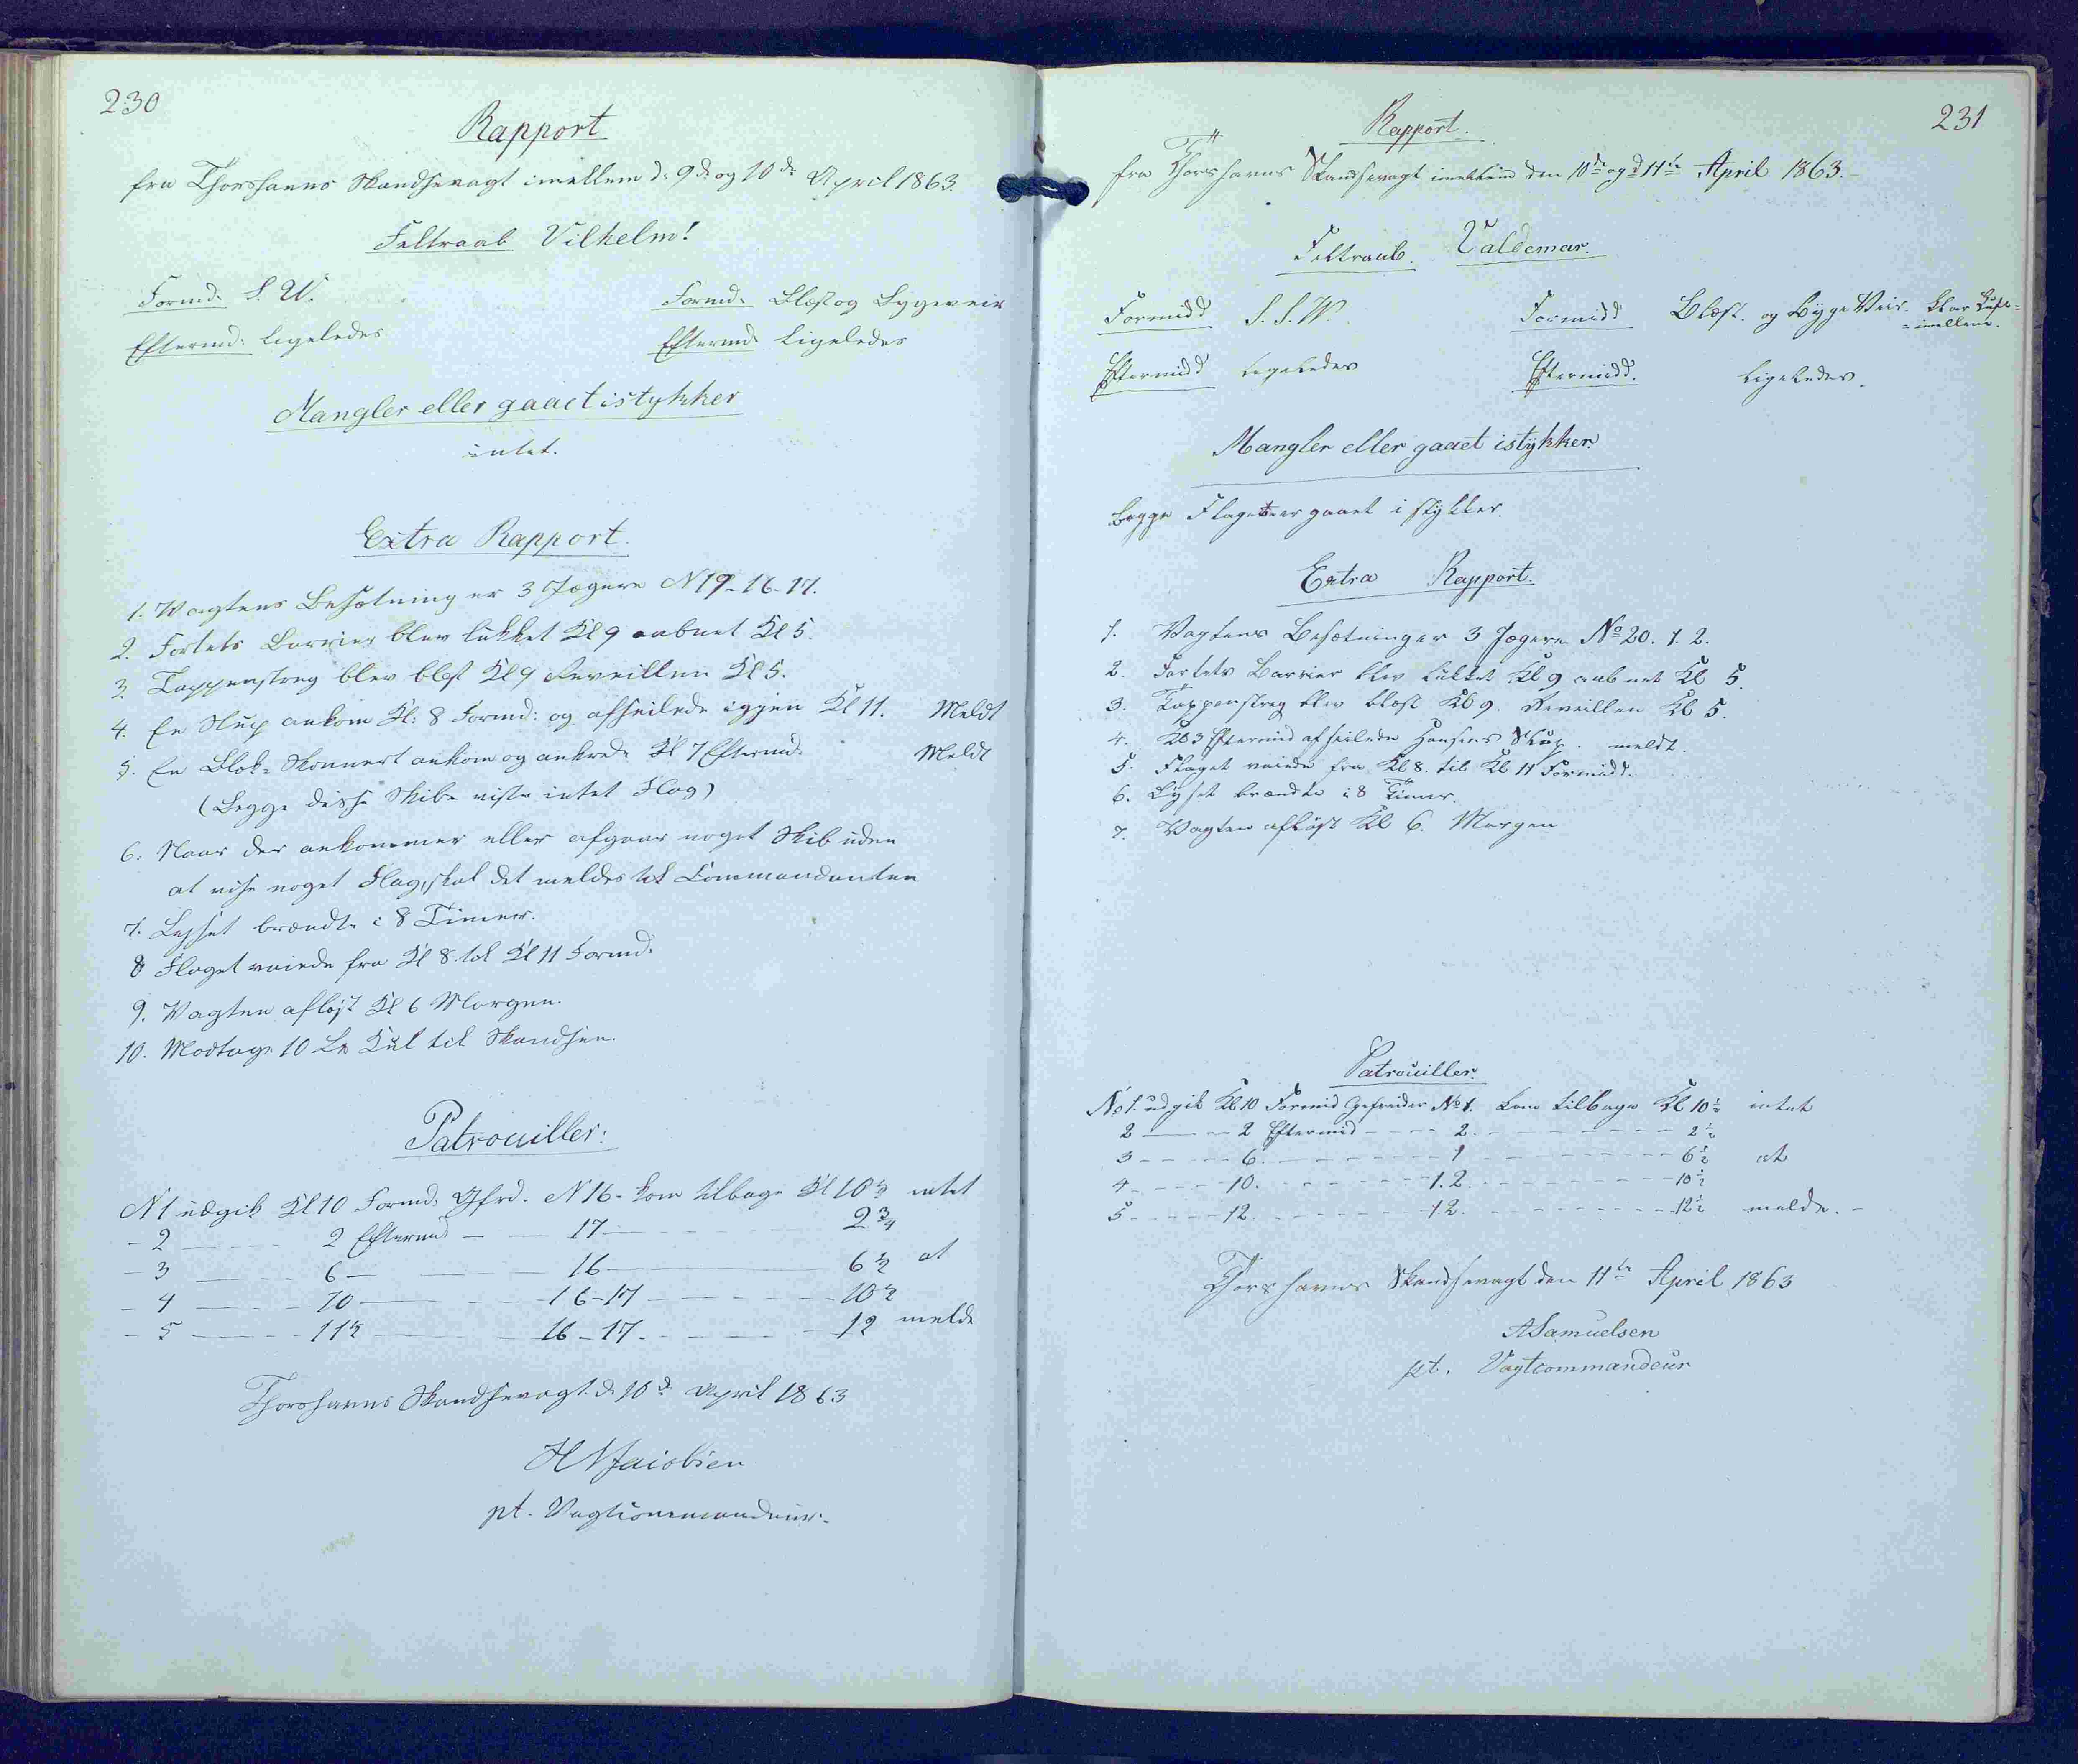 230
Rapport
fra Thorshavns Skandsevagt imellem d: 9d: og 10de April 1863
Feltraab Vilhelm!
Formd: S. W. Formd: Blæst og Bygeveir
Eftermd: Ligeledes Eftermd: Ligeledes
Mangler eller gaaet istykker
intet.
Extra Rapport.
1. Vagtens Besætning er 3 Jægere N 19-16-17.
2. Fortets Barrier blev lukket Kl 9 aabnet Kl 5.
3. Tappenstreg blev blæst Kl 9 Reveillen Kl 5.
4. En Slup ankom Kl: 8 Formd: og afseilede igjen Kl 11. Meldt
5. En Skonnert ankom og ankrede Kl 7 Eftermd. Meldt
(Begge disse Skibe viste intet Flag)
6. Naar der ankommer eller afgaar noget Skib uden
at vise noget Flag, skal det meldes til Commandanten
7. Lyset brændte i 8 Timer.
8 Flaget vaiede fra Kl 8. til Kl 11 Formd.
9. Vagten afløst Kl 6 Morgen.
10. Modtaget 10 Kul til Skandsen.
Patrouiller:
N 1 udgik Kl 10 Formd. Gfrd. N 16- kom tilbage Kl 10½ intet
- 2 — 2 Eftermd — 17 — 2¾
- 3 — 6 — 16 — 6½ at
- 4 — 10 — 16-17 — 10½
- 5 — 11½ — 16-17. — 12 melde
Thorshavns Skandsevagt d. 10d: April 1863
H N Jacobsen
pt. Vagtcommandeur.
231
Rapport.
fra Thorshavns Skandsevagt imellem den 10de og d 11te April 1863.-
Feltraab. Valdemar.
Formidd S. S. W. Formidd Blæst. og Byge Veir. klar Luft=
=imellem.
Eftermidd Ligeledes Eftermidd. Ligeledes.
Mangler eller gaaet istykker.
Begge Flagene er gaaet i stykker.
Extra Rapport.
1. Vagtens Besætning er 3 Jægere No 20. 1. 2.
2. Fortets Barrier blev lukket Kl 9 aabnet Kl 5.
3. Tappenstreg blev blæst Kl 9. Reveillen Kl 5.
4. Kl 3 Eftermid afseilede Hansens Slup. meldt.
5. Flaget vaiede fra Kl 8. til Kl 11 Formidd.
6. Lyset brændte i 8 Timer.
7. Vagten afløst Kl 6. Morgen
Patrouiller.
No 1. udgik Kl 10 Formid Gefreider No 1. kom tilbage Kl 10½ intet
2 — 2 Eftermid - - - 2. - - - 2½
3 - - - 6. - - - 1 - - - 6½ at
4 - - - 10. - - - 1.2. - - - 10½
5 - - - 12. - - - 1.2. - - - 12½ melde. -
Thorshavns Skandsevagt den 11te April 1863
A Samuelsen
pt. Vagtcommandeur